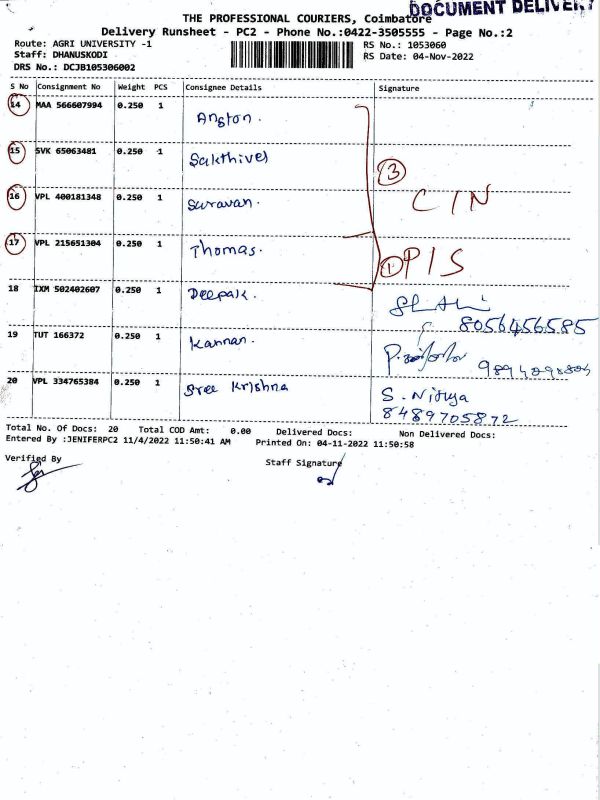 DOCUMENT DELIVERY
THE PROFESSIONAL COURIERS, Coimbatore
Delivery Runsheet - PC2 - Phone No.:0422-3505555 - Page No.:2
Route: AGRI UNIVERSITY -1 RS No.: 1053060
Staff: DHANUSKODI RS Date: 04-Nov-2022
DRS No.: DCJB105306002
S No Consignment No Weight PCS Consignee Details Signature
14 MAA 566607994 0.250 1 Anston.
15 SVK 65063481 0.250 1 Sakthivel
3
16 VPL 400181348 0.250 1 Suravan. CIN
17 VPL 215651304 0.250 1 Thomas.
1 PIS
18 IXM 502402607 0.250 1 Deepak.
8056456585
19 TUT 166372 0.250 1 Kannan.
20 VPL 334765384 0.250 1 Sree Krishna S. Nithya
8489705872
Total No. Of Docs: 20 Total COD Amt: 0.00 Delivered Docs: Non Delivered Docs:
Entered By :JENIFERPC2 11/4/2022 11:50:41 AM Printed On: 04-11-2022 11:50:58
Verified By Staff Signature